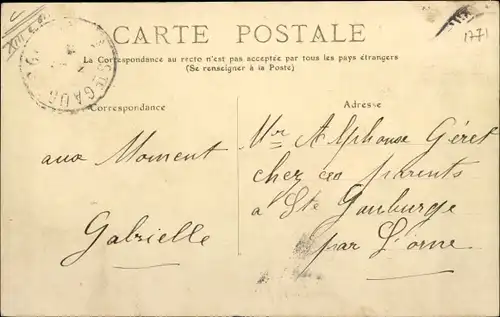 CARTE POSTALE
La Correspondance au recto n'est pas acceptée par tous les pays étrangers
(Se renseigner à la Poste)
Correspondance
Adresse
aux Moment
Gabrielle
Mr Alphonse Géret
chez ces parents
a Ste Gauburge
par L'orne
STE GAUB
1771